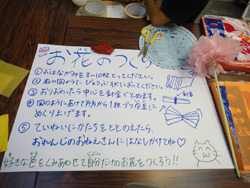 お花のつくり
①おはながみを8〜10枚とってください。
②右の図のように びょうぶおりしまってください。
③おりおわったら中心を針金でとめます。
④図のようにあけて片方から1枚づつ丁寧に
めくりあげます。
⑤ていねいにかたちをととのえたら、
おれんじのおねえさんにはなしかけてね♡
好きな色をくみあわせて自分だけのお花をつくろう!!